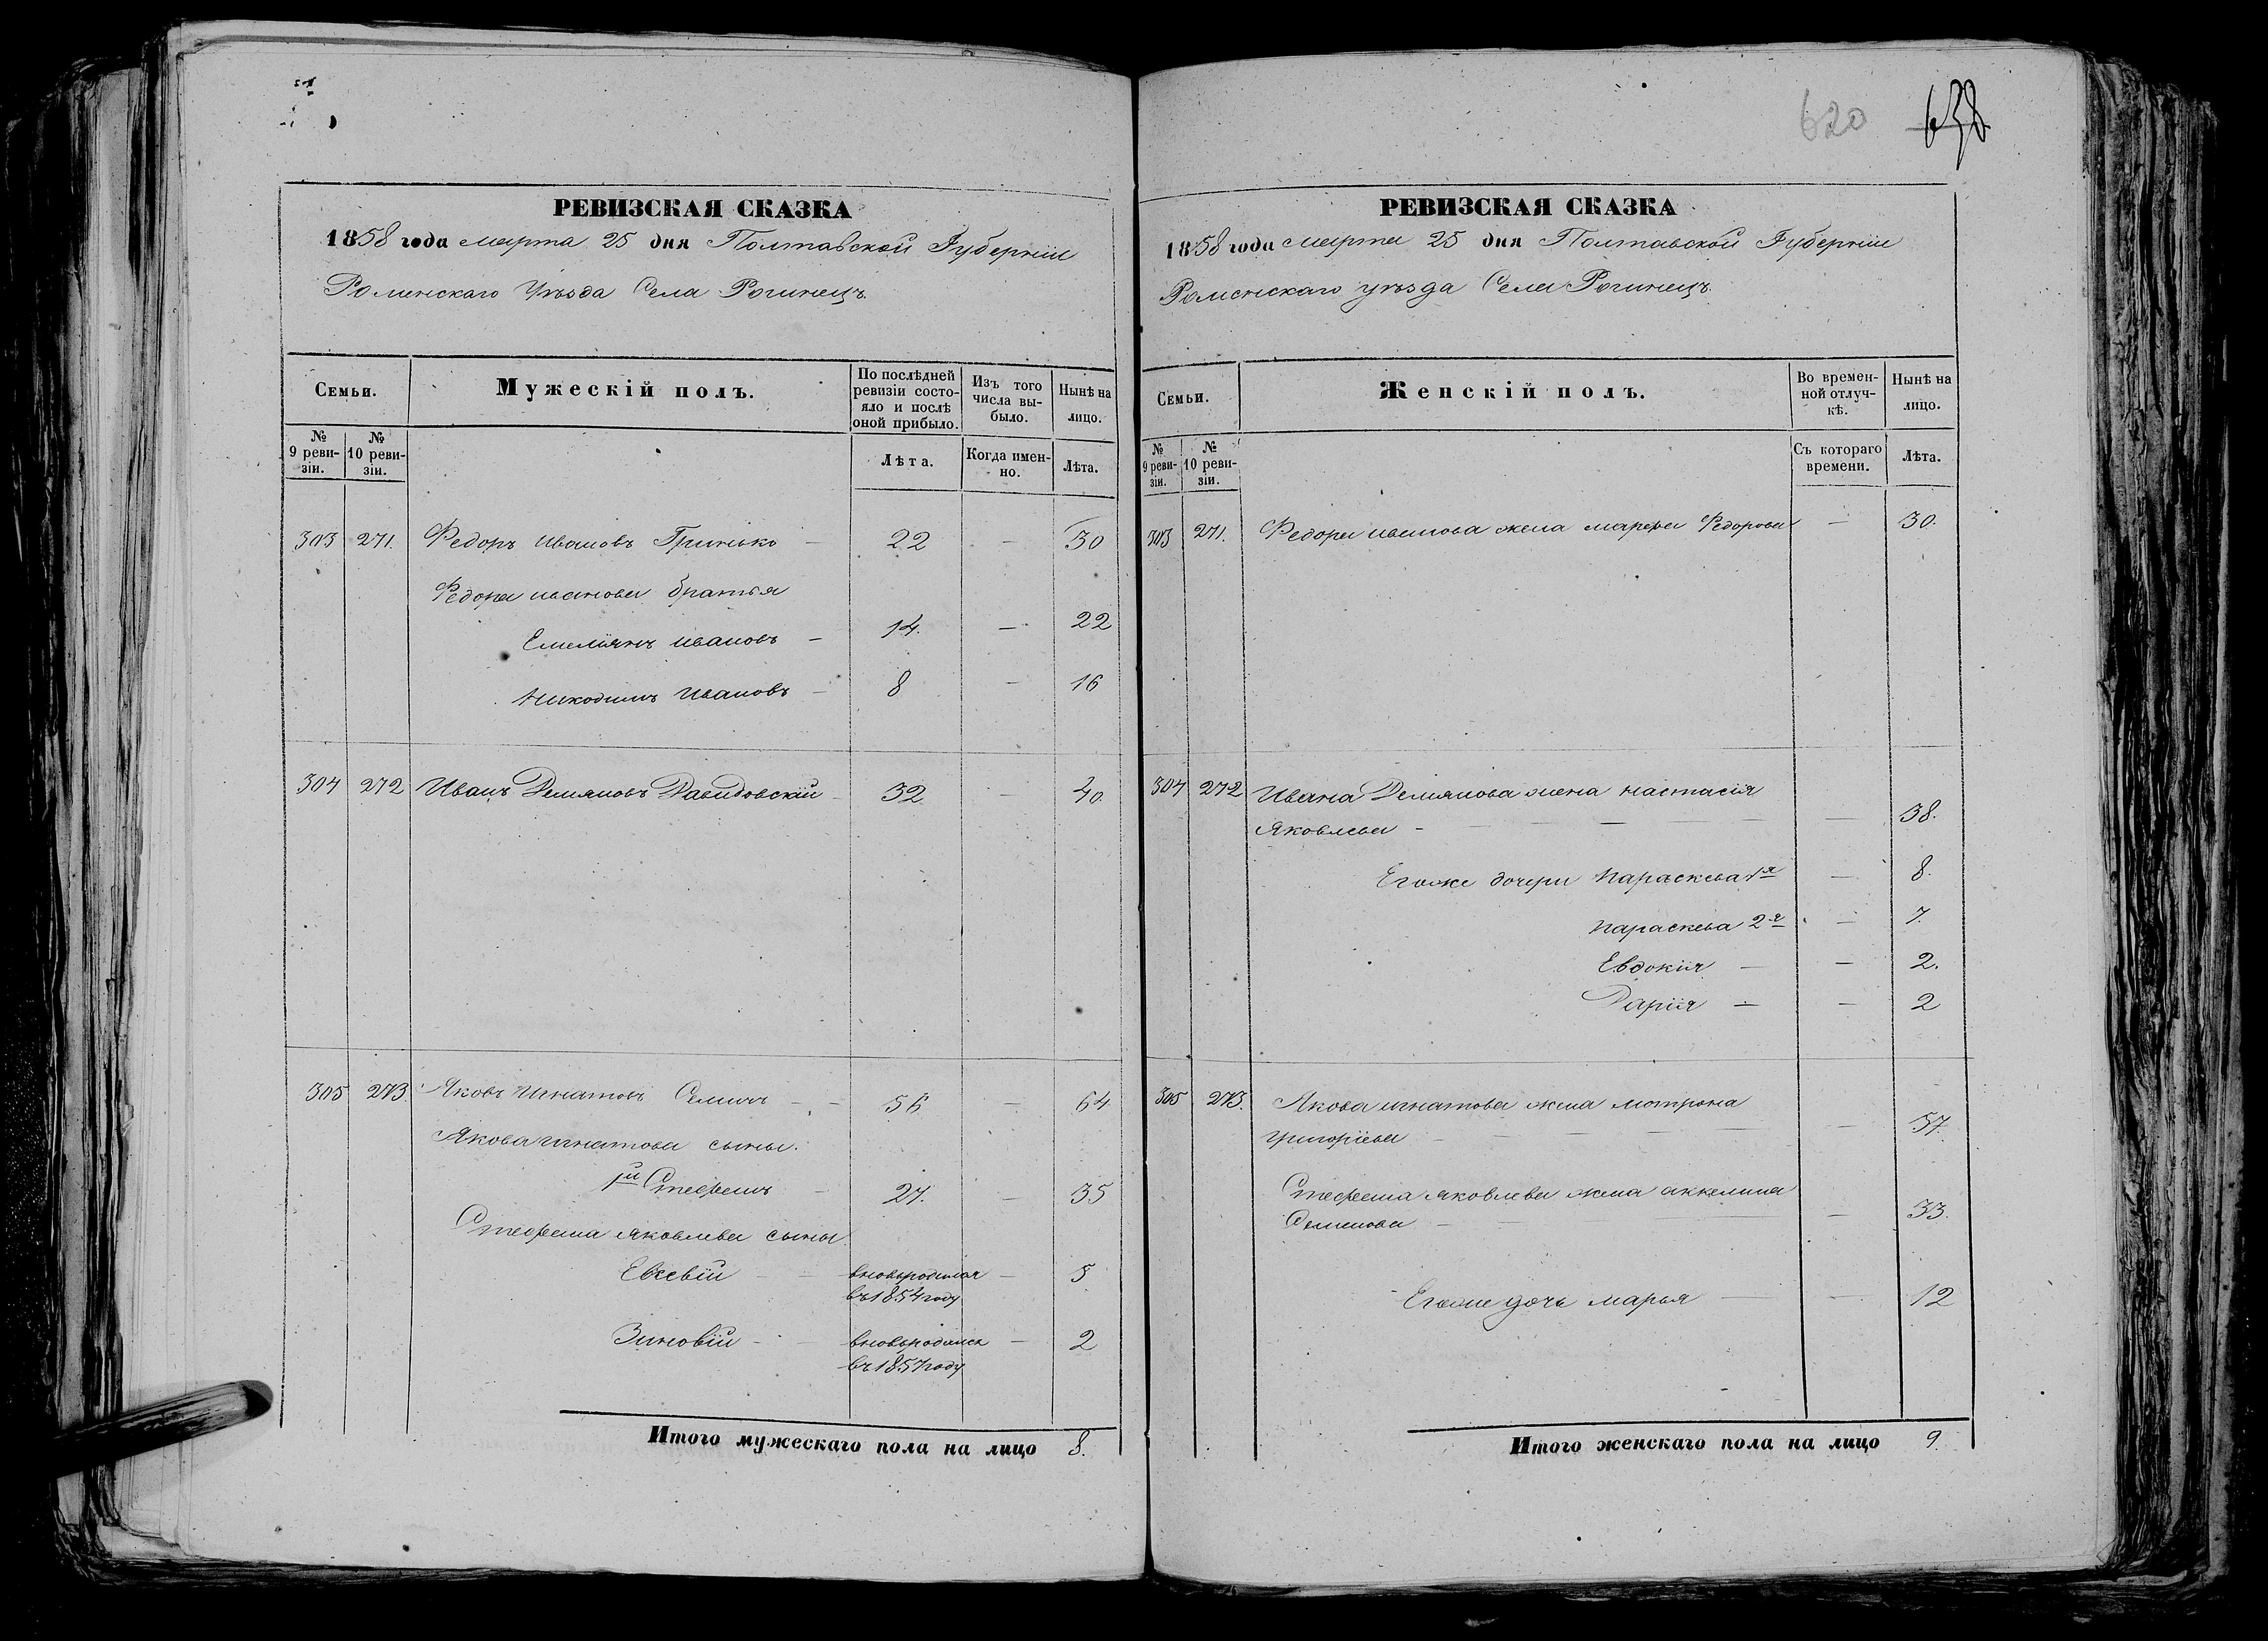 РЕВИЗСКАЯ СКАЗКА
1858 года марта 25 дня Полтавской Губерніи
Роменскаго Уѣзда Села Рогинецъ.
Семьи.
Мужескій полъ.
По послѣдней ревизіи состояло и послѣ оной прибыло.
Изъ того числа выбыло.
Нынѣ на лицо.
№ 9 ревизіи.
№ 10 ревизіи.
Лѣта.
Когда именно.
Лѣта.
303 271. Федоръ Ивановъ Гринько — 22 — 30
Федора иванова братья
Емелiянъ ивановъ — 14. — 22
Никодимъ Ивановъ — 8 — 16
304 272 Иванъ Демяновъ Давидовскій — 32 — 40.
305 273. Яковъ Игнатовъ — — 56 — 64
Якова игнатова сыны.
1й Стефанъ — 27. — 35
Стефана яковлева сыны
Евсевій — — вновьродился — 5
въ 1854 году
Зиновій — — вновьродился — 2
въ 1857 году
Итого мужескаго пола на лицо 8.
620
РЕВИЗСКАЯ СКАЗКА
1858 года марта 25 дня Полтавской Губерніи
Роменскаго уѣзда Села Рогинецъ.
Семьи.
Женскій полъ.
Во временной отлучкѣ.
Нынѣ на лицо.
№ 9 ревизіи.
№ 10 ревизіи.
Съ котораго времени.
Лѣта.
303 271. Федора иванова жена марфа Федорова — 30.
304 272 Ивана Демянова жена настасія
Яковлева — — 38.
Егоже дочери Параскева 1я — 8.
Параскева 2я — 7.
Евдокія — — 2.
Дарія — — 2
305 273. Якова игнатова жена мотрона
григоріева — — 57.
Стефана яковлева жена аккелина
Семенова — — 33.
Егоже дочь марья — — 12
Итого женскаго пола на лицо 9.